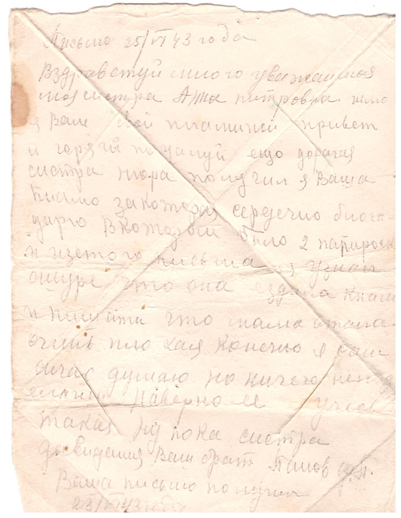 Письмо 25/VI 43 года
Вздравствуй много уважаимая
моя систра
я Вам свой пламиной привет
и горячий поцалуй ещо дорогая
систра нюра получил я Ваше
Письмо закоторая сердечно благо
дарю Вкоторый было 2 папироски
и изетого письма я узнал
что она ездила Книам
и пишите что мама стала
очинь пло хая конечно я сам
сичас думаю но ничего
Наверно
такая ну пока систра
до свидания Ваш брат Панов
Ваша письмо получил
25/VI 43 года